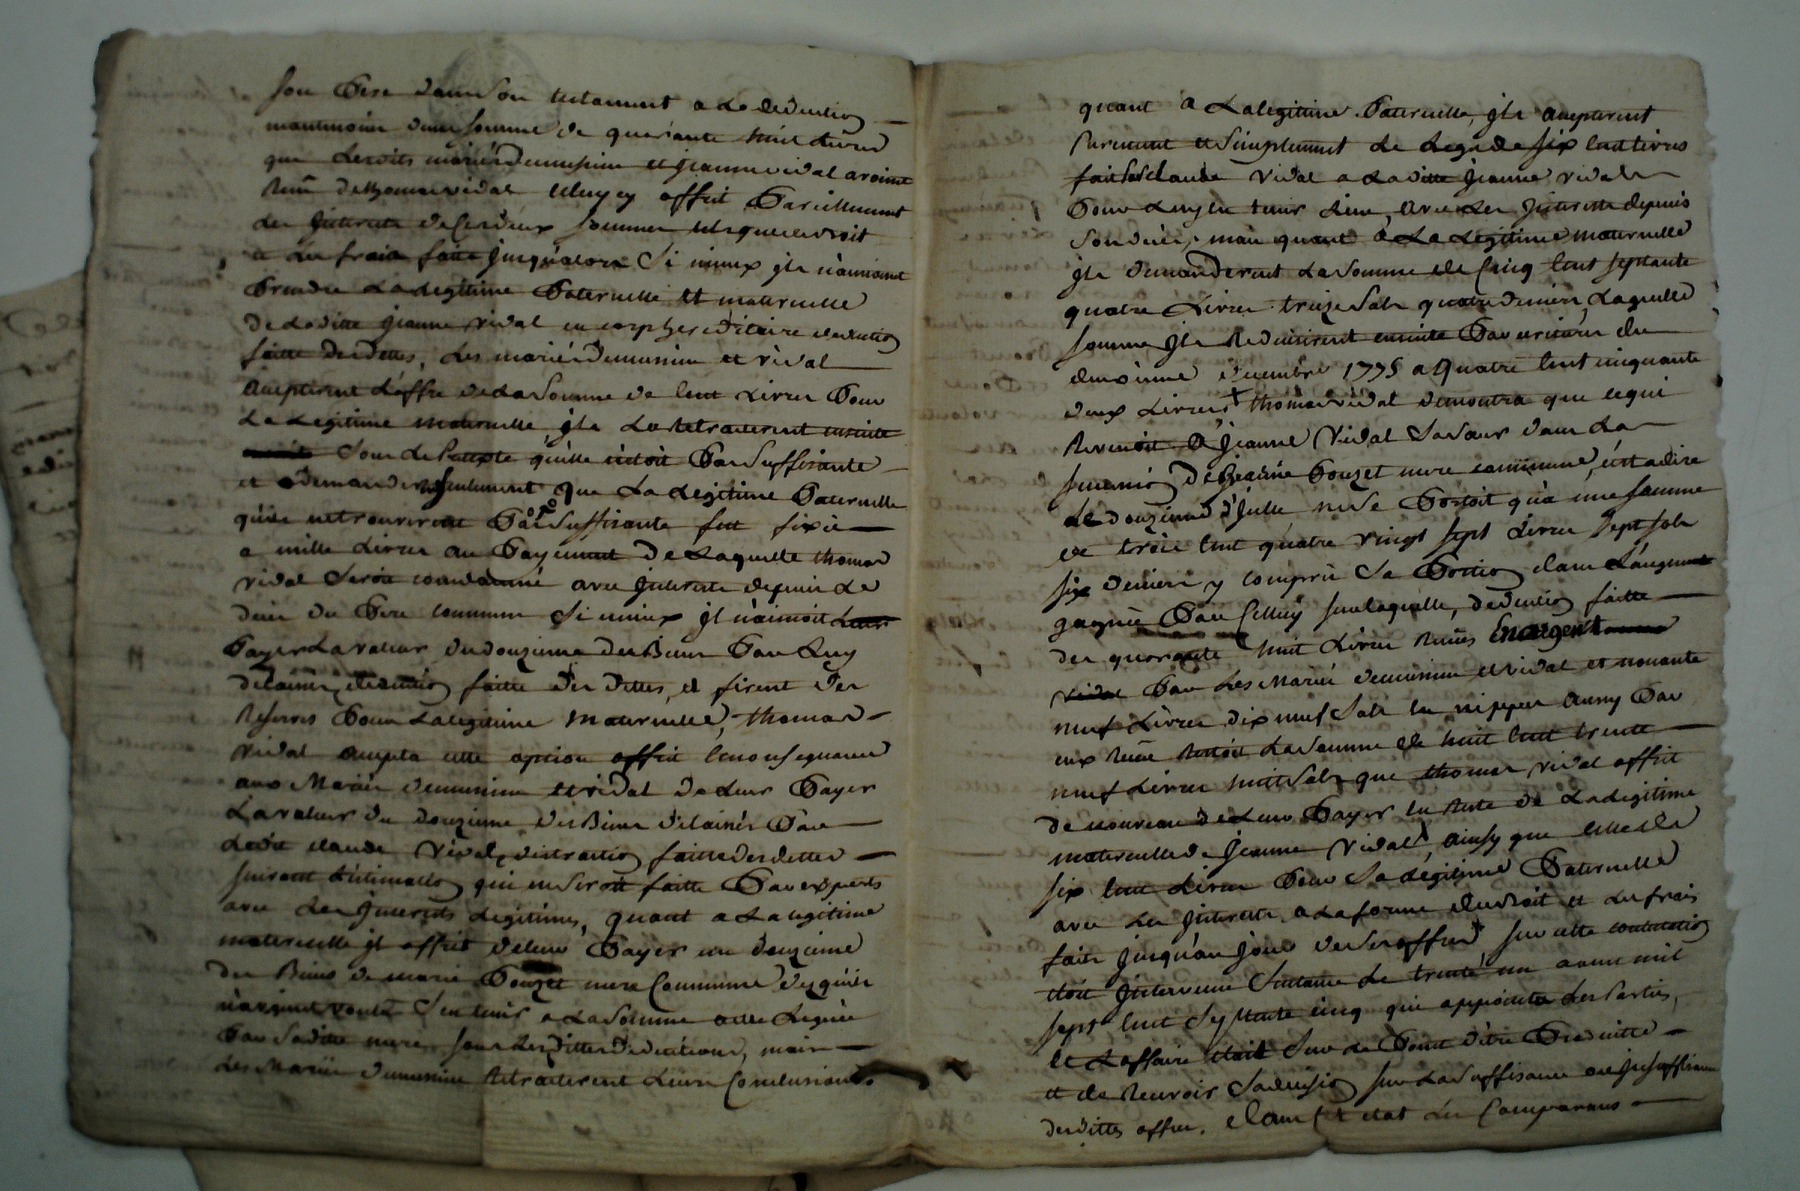 son Pere dans son testament a la deduction
neantmoins d'une somme de quarante huit Livres
que Lesdits mariés Demussieu et jeanne vidal avoint
Reçu de thomas vidal celuy cy offrit Pareillement
les Interets de ces deux sommes tels que de droit
et les frais faits jusqu'alors Si mieux jls n'aimoint
Prendre La legitime Paternelle et maternelle
de laditte jeanne vidal en corps hereditaire deduction
faitte des dettes, Les mariés Demussieu et vidal
accepterent L'offre de la Somme de Cent Livres Pour
La Legitime maternelle jls La Retracterent ensuite
Sous le Pretexte qu'elle n'etoit Pas suffisante
et demanderent seulement que La Legitime Paternelle
qu'ils ne trouverent Pas Suffisante fut fixée
a mille Livres au Payement De Laquelle thomas
vidal Seroit condamné avec Interets depuis Le
deces du Pere commun Si mieux jl n'aimoit
Payer La valeur du douzieme des Biens Par Luy
delaissés, deduction faitte des dettes, et firent des
Reserves Pour La legitime maternelle, thomas
vidal accepta cette option offrit Consequance
aux Mariés Demussieu et vidal de Leur Payer
La valeur du douzieme des Biens delaissés Par
Ledit claude Vidal, distraction faitte des dettes
suivant L'estimation qui en Seroit faitte Par experts
avec Les Interets Legitimes, quant a La legitime
maternelle jl offrit de leur Payer un douzieme
des Biens de marie Pouzet mere Commune des qu'ils
n'avoient voulu S'en tenir a La Somme a elle Leguée
Par Saditte mere sous Les dittes deductions, mais
Les Mariés Demussieu Retracterent Leurs Conclusions.
quant a La legitime Paternelle, jls accepterent
Purement et Simplement Le Legs de six Cent livres
fait Par claude vidal a Laditte jeanne vidal
Pour Luy en tenir Lieu, avec Les Interets depuis
Son deces, mais quant a La Legitime maternelle
jls demanderent La Somme de Cinq Cent septante
quatre Livres treize Sols quatre deniers Laquelle
somme jls Reduisirent ensuite Par ecritures du
deuxieme decembre 1775 a Quatre Cent cinquante
deux Livres thomas vidal demontra que ce qui
Revenoit a jeanne Vidal Sa Soeur dans La
succession de Pouzet mere commune, c'est a dire
Le douzieme d'jcelle ne Se Portoit qu'a une Somme
de trois Cent quatre vingt sept Livres sept sols
six deniers y compris Sa Portion dans L'augment
gagnée Par Celluy sur laquelle, deduction faitte
des quarante huit Livres Reçues En argent
Par Les Mariés Demussieu et vidal et nonante
neuf Livres dix neuf Sols en nippes aussy Par
eux Reçue Restoit La Somme de huit Cent trente
neuf Livres huit Sols que thomas vidal offrit
de nouveau de Leur Payer en Reste de La legitime
maternelle de jeanne Vidal, ainsy que celle de
six Cent Livres Pour Sa Legitime Paternelle
avec Les Interets a La forme du droit et Les frais
faits jusqu'au jour de Ses offres sur cette contestation
etoit Intervenue Sentence Le trente un aoust mil
sept Cent Septente cinq qui appointa Les Parties,
et L'affaire etoit Sur le Point d'être Produitte
et de Recevoir Sa decision sur La Suffisance ou Insuffisance
desdittes offres. dans Cet etat Les Comparans